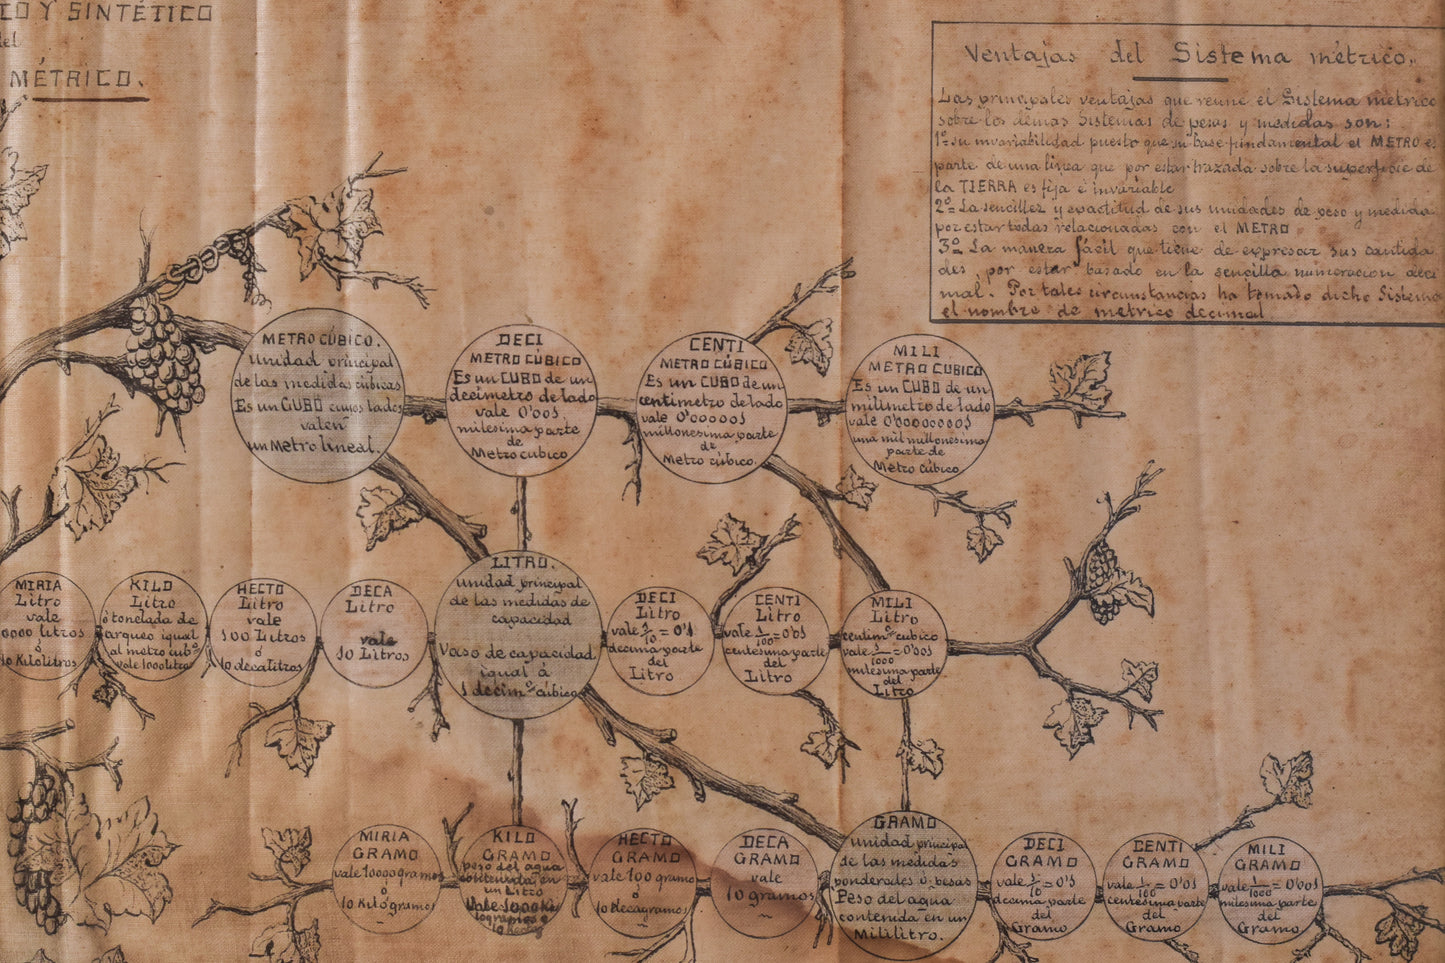 CO Y SINTÉTICO
del
MÉTRICO.
Ventajas del Sistema métrico.
Las principales ventajas que reune el Sistema métrico
sobre los demas Sistemas de pesas y medidas son:
1º= su invariabilidad puesto que su base fundamental el METRO es
parte de una linea que por estar trazada sobre la superficie de
la TIERRA es fija é invariable
2º= La sencillez y exactitud de sus unidades de peso y medida
por estar todas relacionadas con el METRO
3º= La manera fácil que tiene de expresar sus cantida
des, por estar basado en la sencilla numeracion deci
mal. Por tales circunstancias ha tomado dicho Sistema
el nombre de metrico decimal
METRO CÚBICO.
Unidad principal
de las medidas cúbicas
Es un CUBO cuyos lados
valen
un Metro lineal.
DECI
METRO CÚBICO
Es un CUBO de un
decimetro de lado
vale 0'001
milesima parte
de
Metro cubico
CENTI
METRO CÚBICO
Es un CUBO de un
centimetro de lado
vale 0'000001
millonesima parte
de
Metro cúbico.
MILI
METRO CUBICO
Es un CUBO de un
milimetro de lado
vale 0'000000001
una mil millonesima
parte de
Metro Cúbico
MIRIA
Litro
vale
0000 litros
ó
10 Kilolitros
KILO
Litro
ó tonelada de
arqueo igual
al metro cubº
vale 1000 litros
HECTO
Litro
vale
100 Litros
ó
10 decalitros
DECA
Litro
vale
10 Litros
LITRO.
Unidad principal
de las medidas de
capacidad
Vaso de capacidad
igual á
1 decimº cúbico
DECI
Litro
vale 1/10 = 0'1
decima parte
del
Litro
CENTI
Litro
vale 1/100 = 0'01
centesima parte
del
Litro
MILI
Litro
centimº cubico
vale 1/1000 = 0'001
milesima parte
del
Litro
MIRIA
GRAMO
vale 10000 gramos
ó
10 Kilógramos
KILO
GRAMO
peso del agua
contenida en
un Litro
HECTO
GRAMO
vale 100 gramo
ó
10 decagramos
DECA
GRAMO
vale
10 gramos
GRAMO
Unidad principal
de las medidas
ponderodes ó pesas
Peso del agua
contenida en un
Mililitro.
DECI
GRAMO
vale 1/10 = 0'1
decima parte
del
Gramo
CENTI
GRAMO
vale 1/100 = 0'01
centesima parte
del
Gramo
MILI
GRAMO
vale 1/1000 = 0'001
milesima parte
del
Gramo